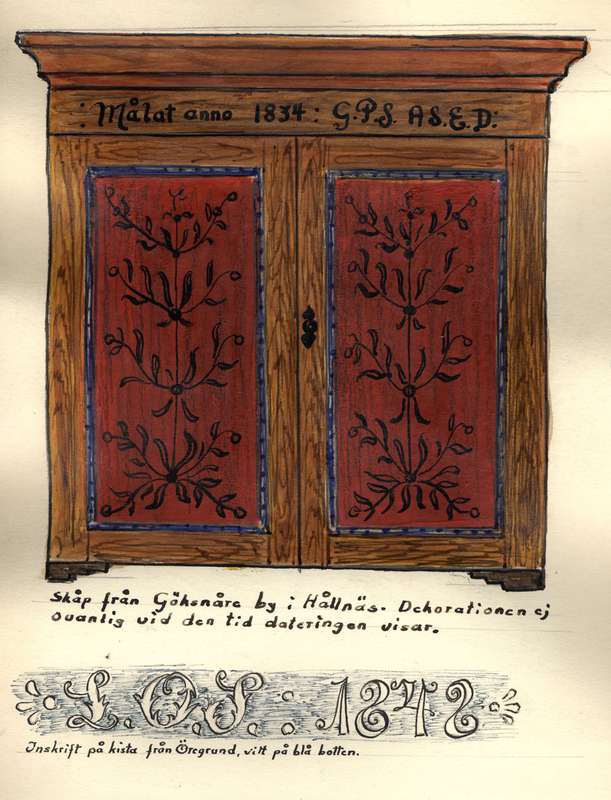 : Målat anno 1834: G.P.S. A S.E.D:
Skåp från Göksnåre by i Hållnäs. Dekorationen ej
ovanlig vid den tid dateringen visar.
L.O.S. 1848
Inskrift på kista från Öregrund, vitt på blå botten.